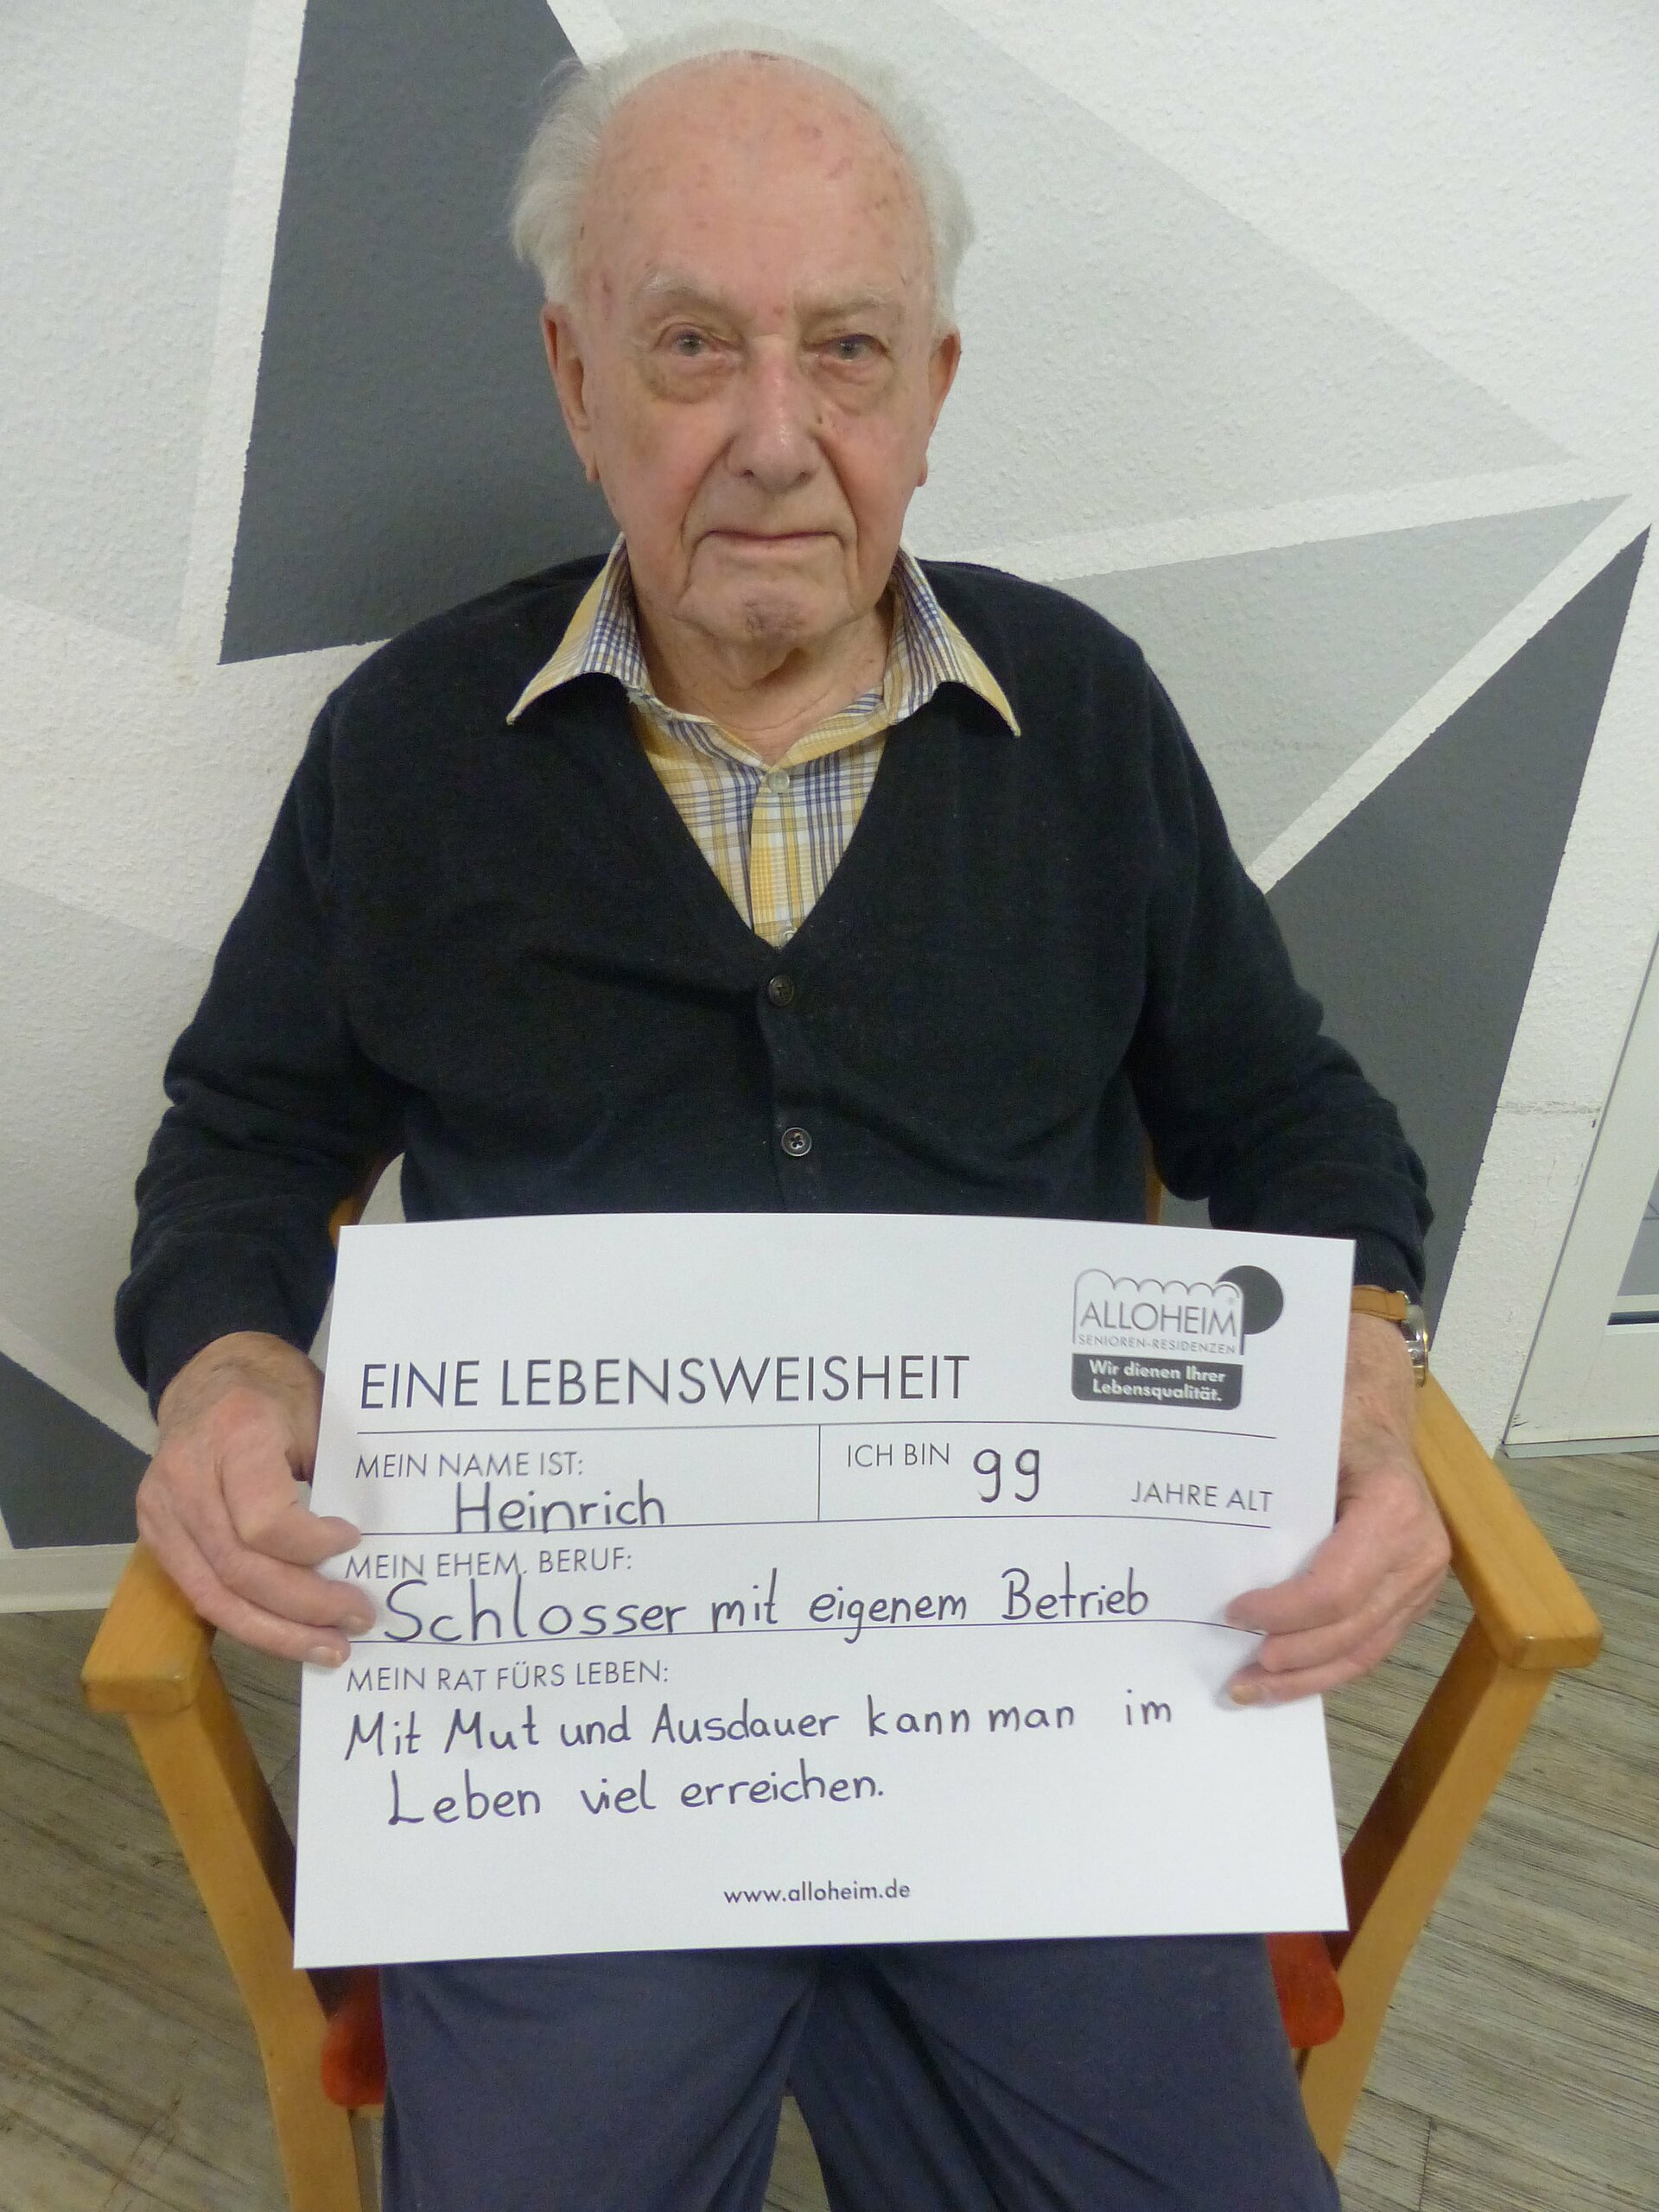 ALLOHEIM
SENIOREN-RESIDENZEN
Wir dienen Ihrer
Lebensqualität.
EINE LEBENSWEISHEIT
MEIN NAME IST:
Heinrich
ICH BIN 99 JAHRE ALT
MEIN EHEM. BERUF:
Schlosser mit eigenem Betrieb
MEIN RAT FÜRS LEBEN:
Mit Mut und Ausdauer kann man im
Leben viel erreichen.
www.alloheim.de